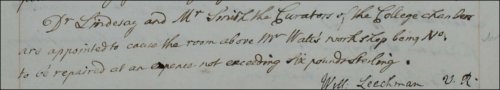 Dr Lindesay and Mr Smith the Curators of the College chambers
are appointed to cause the room above Mr Watt's workshop being No.
to be repaired at an expence not exceeding six pounds sterling.
Will. Leechman V. R.